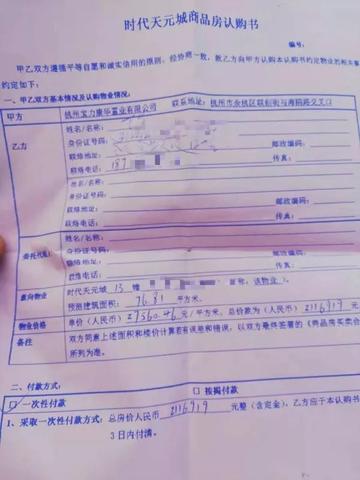 时代天元城商品房认购书
编号:
甲乙双方遵循平等自愿和诚实信用的原则，经协商一致，就乙方向甲方认购本认购书约定物业的相关事
约定如下:
一、甲乙双方基本情况及认购物业情况:
甲方 杭州宝力康华置业有限公司 联系地址: 杭州市余杭区联创街与海曙路交叉口
乙方
姓名/名称:
身份证号码:
联络地址: 邮政编码:
联络电话: 189 传真:
姓名/名称:
身份证号码:
联络地址: 邮政编码:
联络电话: 传真:
委托代理
姓名/名称:
身份证号码:
联络地址: 邮政编码:
联络电话: 传真:
意向物业 时代天元城 13 幢 该物业).
预测建筑面积: 76.81 平方米.
物业价格 单价(人民币) 27560.46 元/平方米, 总价款为(人民币) 2116919 元
备注 双方同意上述面积和楼价计算若有误差和错误，以双方最终签署的《商品房买卖合
所列为准。
二、付款方式:
☑一次性付款 □按揭付款
1、采取一次性付款方式: 总房价人民币 2116919 元整(含定金), 乙方应于本认购书
3日内付清。